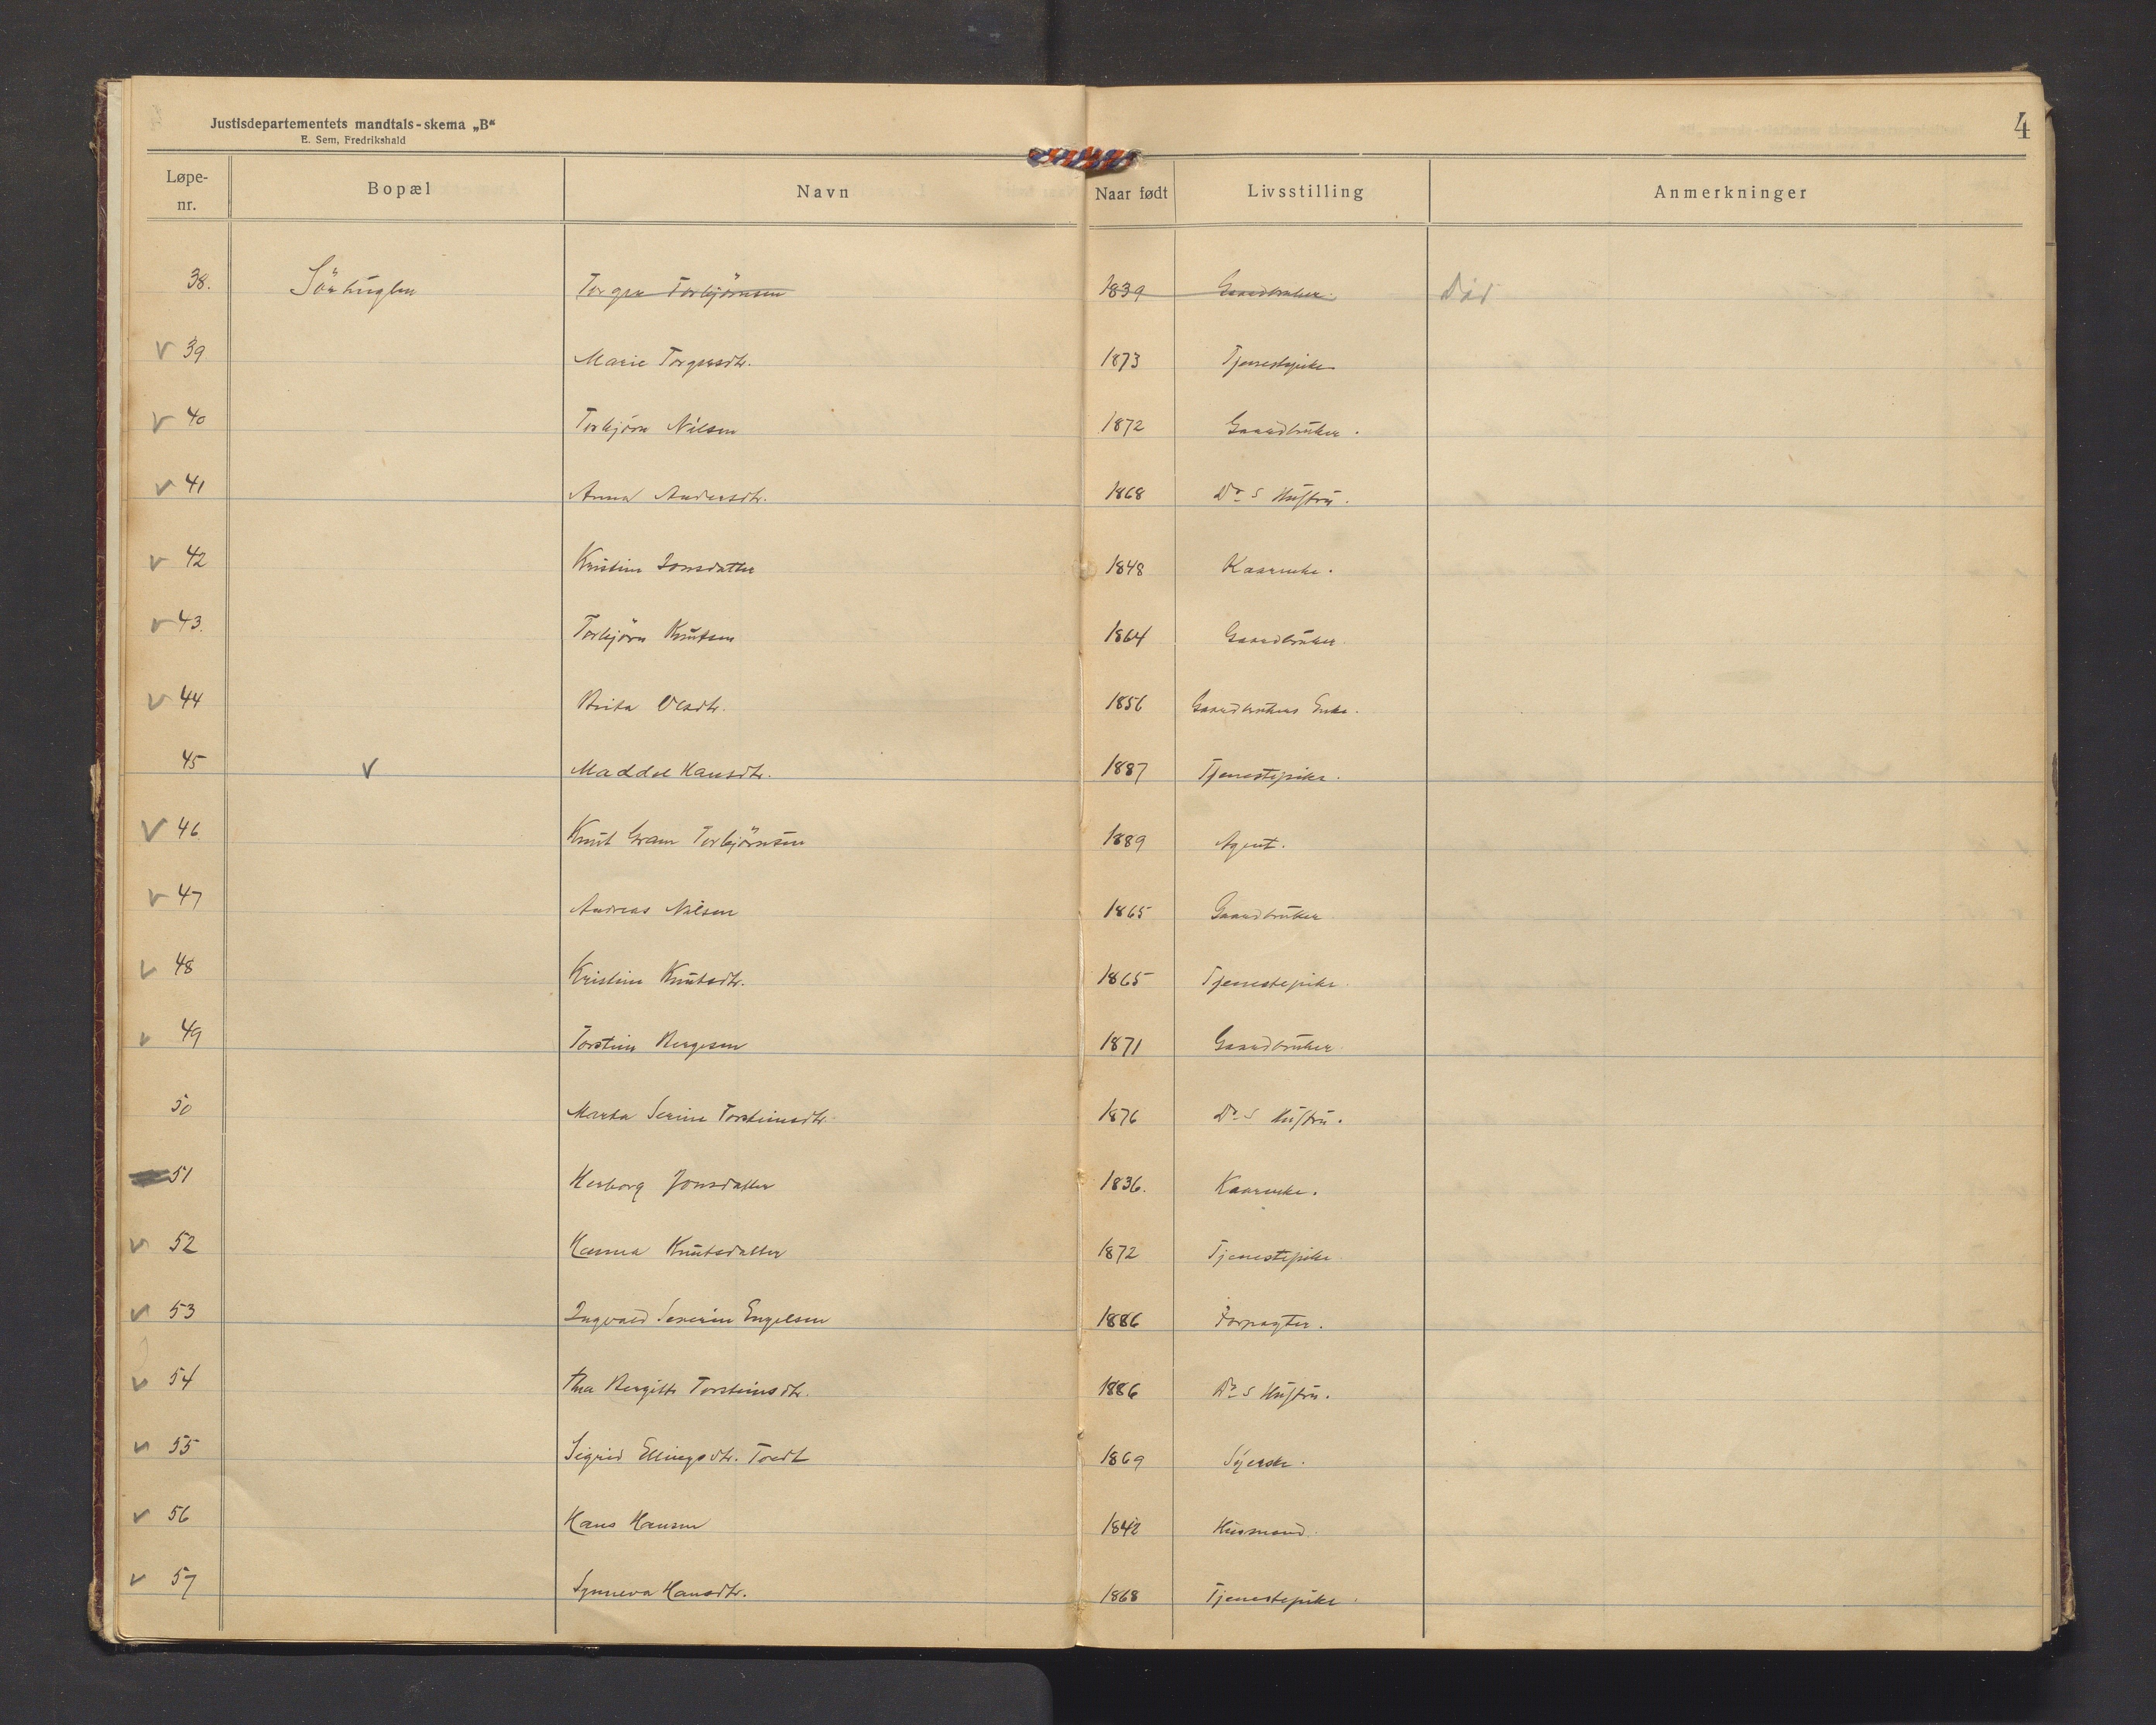 Justisdepartementets mandtals-skema „B“
E. Sem, Fredrikshald
4
Løpe-nr. Bopæl Navn Naar født Livsstilling Anmerkninger
38. Sörhuglen Torger Torbjörnsen 1839 Gaardbruker. Död
v 39 Marie Torgersdtr. 1873 Tjenestepike
v 40 Torbjörn Nilsen 1872 Gaardbruker.
v 41 Anna Andersdtr. 1868 Do s Hustru.
v 42 Kristine Jonsdatter 1848 Kaarenke.
v 43. Torbjörn Knutsen 1864 Gaardbruker.
v 44 Brita Olsdtr. 1856 Gaardbrukers Enke.
45 v Maddel Hansdtr. 1887 Tjenestepike.
v 46. Knut Gram Torbjörnsen 1889 Agent.
v 47 Andreas Nilsen 1865 Gaardbruker
v 48 Kristine Knutsdtr. 1865 Tjenestepike.
v 49 Torstein Bergesen 1871 Gaardbruker
50 Marta Serine Torsteinsdtr. 1876 Do s Hustru.
51 Herborg Jonsdatter 1836. Kaarenke.
v 52 Hanna Knutsdatter 1872 Tjenestepike
v 53 Ingvald Severin Engelsen 1886 Forpagter.
v 54 Bergitte Torsteinsdtr. 1886 Do s Hustru.
v 55 Sigrid Ellingsdtr. Tvedt 1869 Syerske.
v 56 Hans Hansen 1842 Husmand.
v 57 Synneva Hansdtr. 1868 Tjenestepike.